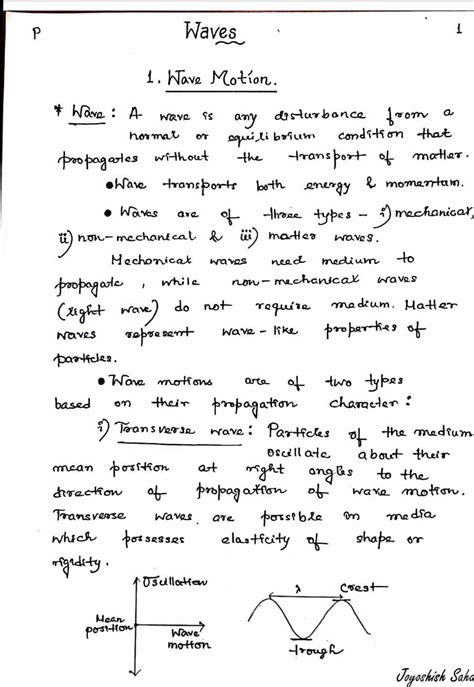 P
Waves
1
1. Wave Motion.
* Wave : A wave is any disturbance from a
normal or equilibrium condition that
propagates without the transport of matter.
• Wave transports both energy & momentum.
• Waves are of three types - i) mechanical,
ii) non-mechanical & iii) matter waves.
Mechanical waves need medium to
propagate, while non-mechanical waves
(light wave) do not require medium. Matter
waves represent wave-like properties of
particles.
• Wave motions are of two types
based on their propagation character :
i) Transverse wave : Particles of the medium
oscillate about their
mean position at right angles to the
direction of propagation of wave motion.
Transverse waves are possible in media
which possesses elasticity of shape or
rigidity.
Oscillation
Mean
position
Wave
motion
λ
Crest
trough
Joyoshish Saha